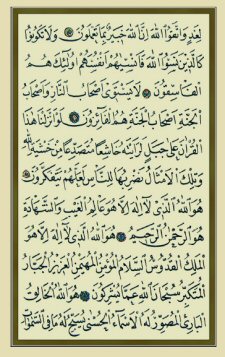 لِغَدٍ وَاتَّقُوا اللّٰهَ اِنَّ اللّٰهَ خَبِيرٌ بِمَا تَعْمَلُونَ وَلَا تَكُونُوا
كَالَّذِينَ نَسُوا اللّٰهَ فَاَنْسٰيهُمْ اَنْفُسَهُمْ اُولٰٓئِكَ هُمُ
الْفَاسِقُونَ لَا يَسْتَوِى اَصْحَابُ النَّارِ وَاَصْحَابُ
الْجَنَّةِ اَصْحَابُ الْجَنَّةِ هُمُ الْفَآئِزُونَ لَوْ اَنْزَلْنَا هٰذَا
الْقُرْاٰنَ عَلٰى جَبَلٍ لَرَاَيْتَهُ خَاشِعًا مُتَصَدِّعًا مِنْ خَشْيَةِ اللّٰهِ
وَتِلْكَ الْاَمْثَالُ نَضْرِبُهَا لِلنَّاسِ لَعَلَّهُمْ يَتَفَكَّرُونَ
هُوَ اللّٰهُ الَّذِى لَٓا اِلٰهَ اِلَّا هُوَ عَالِمُ الْغَيْبِ وَالشَّهَادَةِ
هُوَ الرَّحْمٰنُ الرَّحِيمُ هُوَ اللّٰهُ الَّذِى لَٓا اِلٰهَ اِلَّا هُوَ
اَلْمَلِكُ الْقُدُّوسُ السَّلَامُ الْمُؤْمِنُ الْمُهَيْمِنُ الْعَزِيزُ الْجَبَّارُ
الْمُتَكَبِّرُ سُبْحَانَ اللّٰهِ عَمَّا يُشْرِكُونَ هُوَ اللّٰهُ الْخَالِقُ
الْبَارِئُ الْمُصَوِّرُ لَهُ الْاَسْمَٓاءُ الْحُسْنٰى يُسَبِّحُ لَهُ مَا فِى السَّمٰوَاتِ